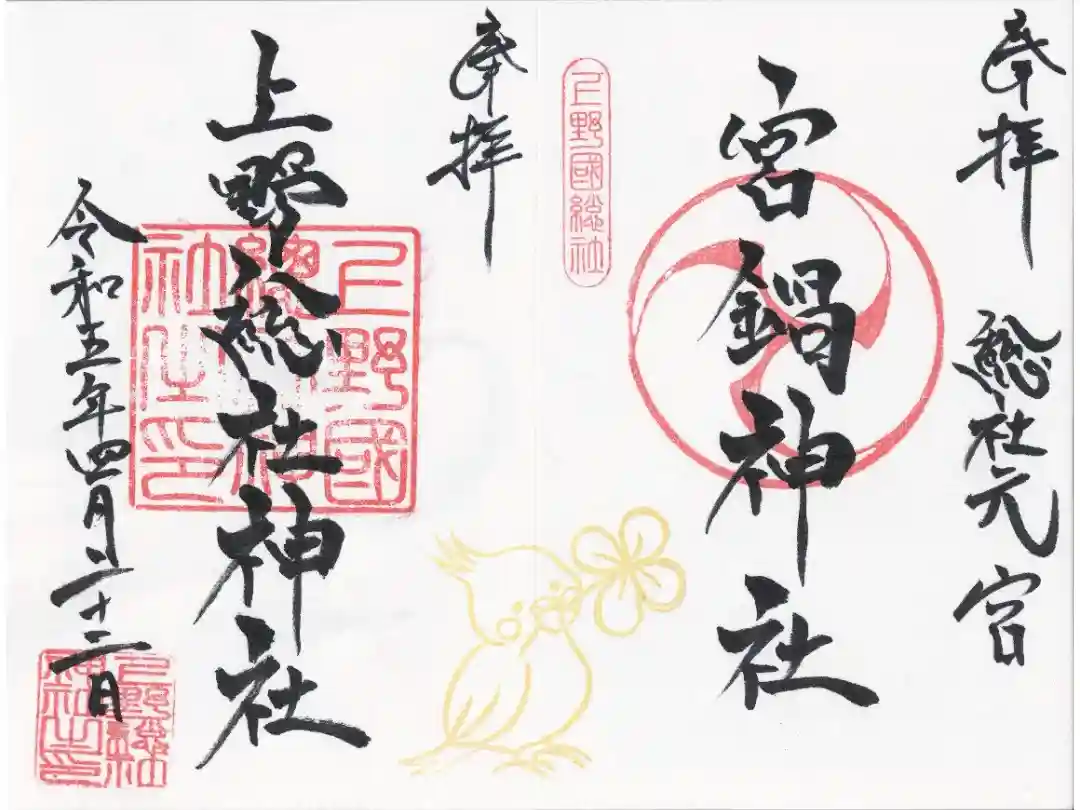 奉拝
総社元宮
宮鍋神社
上野國総社
奉拝
上野総社神社
上野國
總社神
社之印
令和五年四月二十二日
上野総社
神社之印